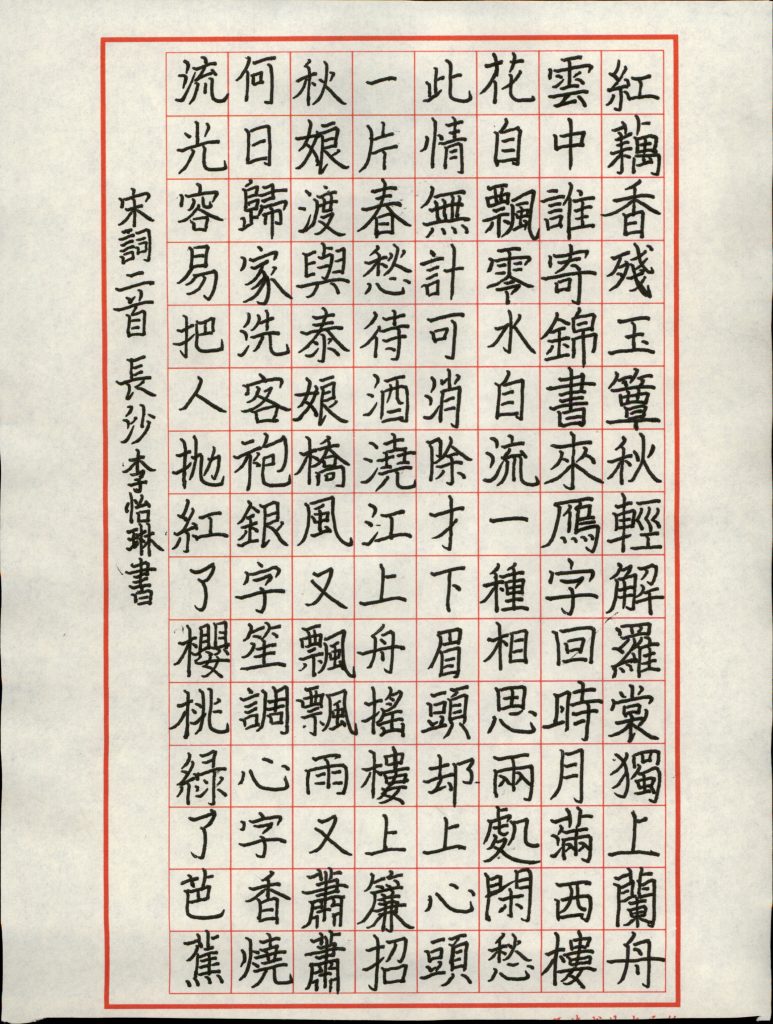 紅藕香殘玉簟秋輕解羅裳獨上蘭舟
雲中誰寄錦書來鴈字回時月滿西樓
花自飄零水自流一種相思兩處閑愁
此情無計可消除才下眉頭却上心頭
一片春愁待酒澆江上舟搖樓上簾招
秋娘渡與泰娘橋風又飄飄雨又蕭蕭
何日歸家洗客袍銀字笙調心字香燒
流光容易把人抛紅了櫻桃緑了芭蕉
宋詞二首 長沙李怡琳書